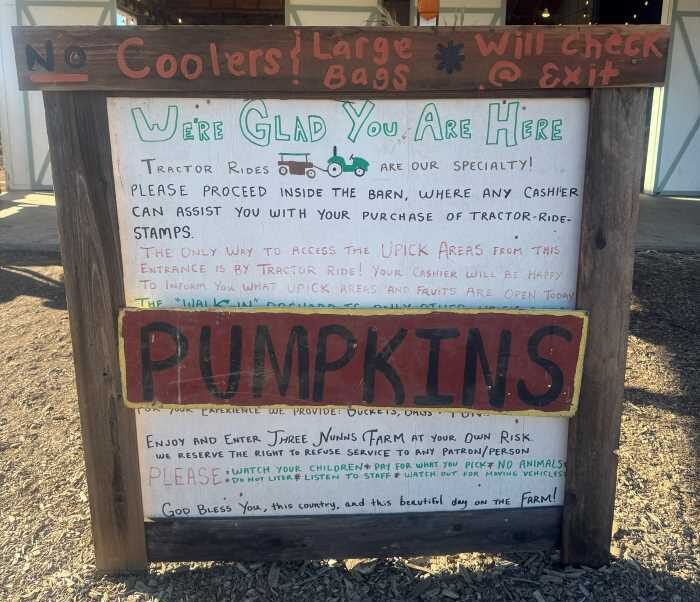 No Coolers & Large Bags * Will check @ Exit
WE'RE GLAD YOU ARE HERE
TRACTOR RIDES ARE OUR SPECIALTY!
PLEASE PROCEED INSIDE THE BARN, WHERE ANY CASHIER
CAN ASSIST YOU WITH YOUR PURCHASE OF TRACTOR-RIDE-
STAMPS.
THE ONLY WAY TO ACCESS THE UPICK AREAS FROM THIS
ENTRANCE IS BY TRACTOR RIDE! YOUR CASHIER WILL BE HAPPY
TO INFORM YOU WHAT UPICK AREAS AND FRUITS ARE OPEN TODAY
THE "WALK-IN"
PUMPKINS
FOR YOUR EXPERIENCE WE PROVIDE: BUCKETS,
ENJOY AND ENTER THREE NUNNS FARM AT YOUR OWN RISK
WE RESERVE THE RIGHT TO REFUSE SERVICE TO ANY PATRON/PERSON
PLEASE: • WATCH YOUR CHILDREN * PAY FOR WHAT YOU PICK * NO ANIMALS
• DO NOT LITER * LISTEN TO STAFF * WATCH OUT FOR MOVING VEHICLES
GOD BLESS YOU, this country, and this beautiful day ON THE FARM!